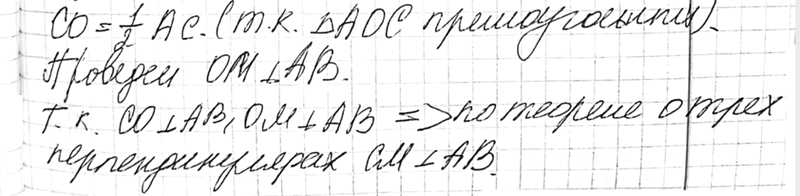 CO = 1/2 AC. (т.к. △AOC прямоугольный).
Проведем OM ⊥ AB.
Т.к. CO ⊥ AB, OM ⊥ AB => по теореме о трех
перпендикулярах CM ⊥ AB.